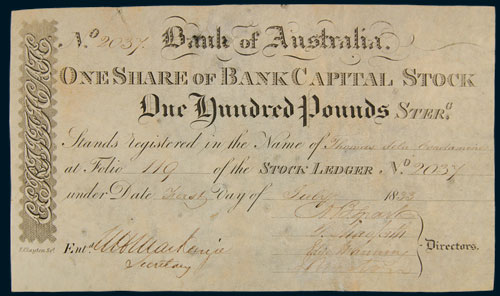 CERTIFICATE
No. 2037 Bank of Australia.
ONE SHARE OF BANK CAPITAL STOCK
One Hundred Pounds STERG.
Stands registered in the Name of Thomas John
at Folio 119 of the STOCK LEDGER No. 2037
under Date First Day of July 1833
Directors.
Entd. Mackenzie
Secretary